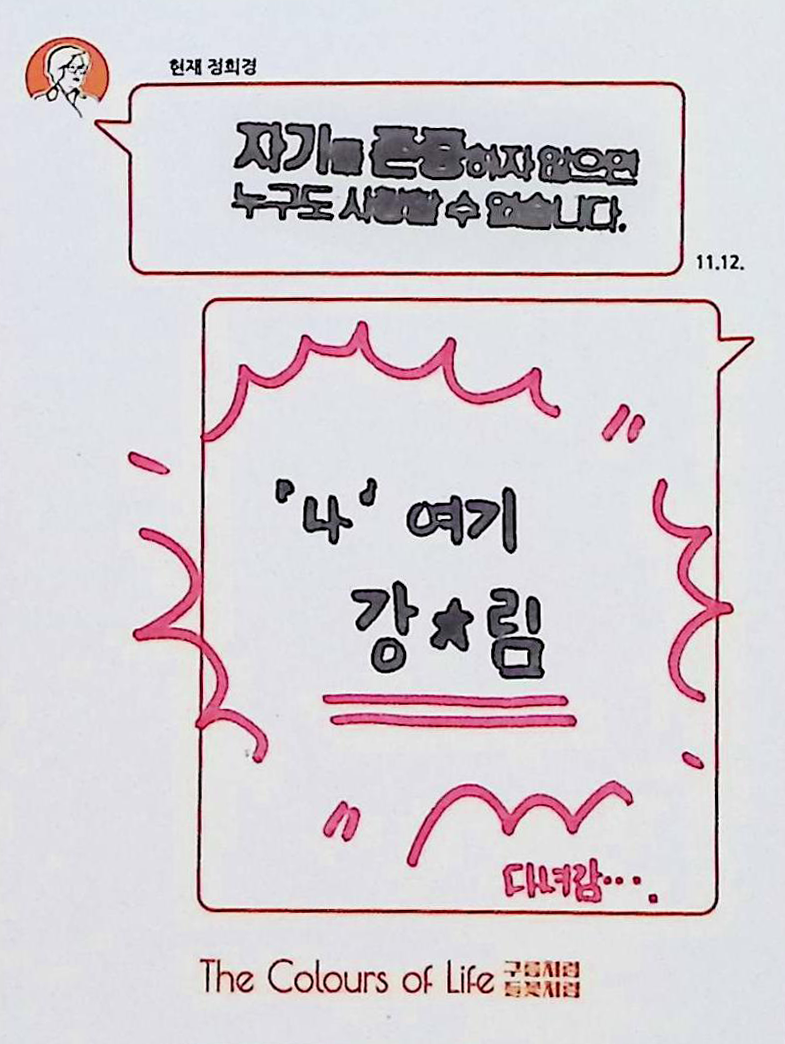 현재 정희경
자기를 존중하지 않으면
누구도 사랑할 수 없습니다.
11.12.
'나' 여기
강★림
다녀감….
The Colours of Life 구름처럼
들꽃처럼